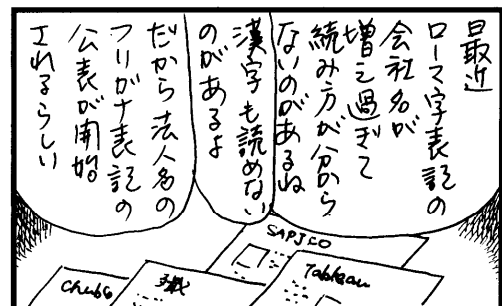 最近
ローマ字表記の
会社名が
増え過ぎて
続み方が分から
ないのがあるね
漢字も読めない
のがあるよ
だから法人名の
フリガナ表記の
公表が開始
されるらしい
SAPJCO
Tableau
Chubb